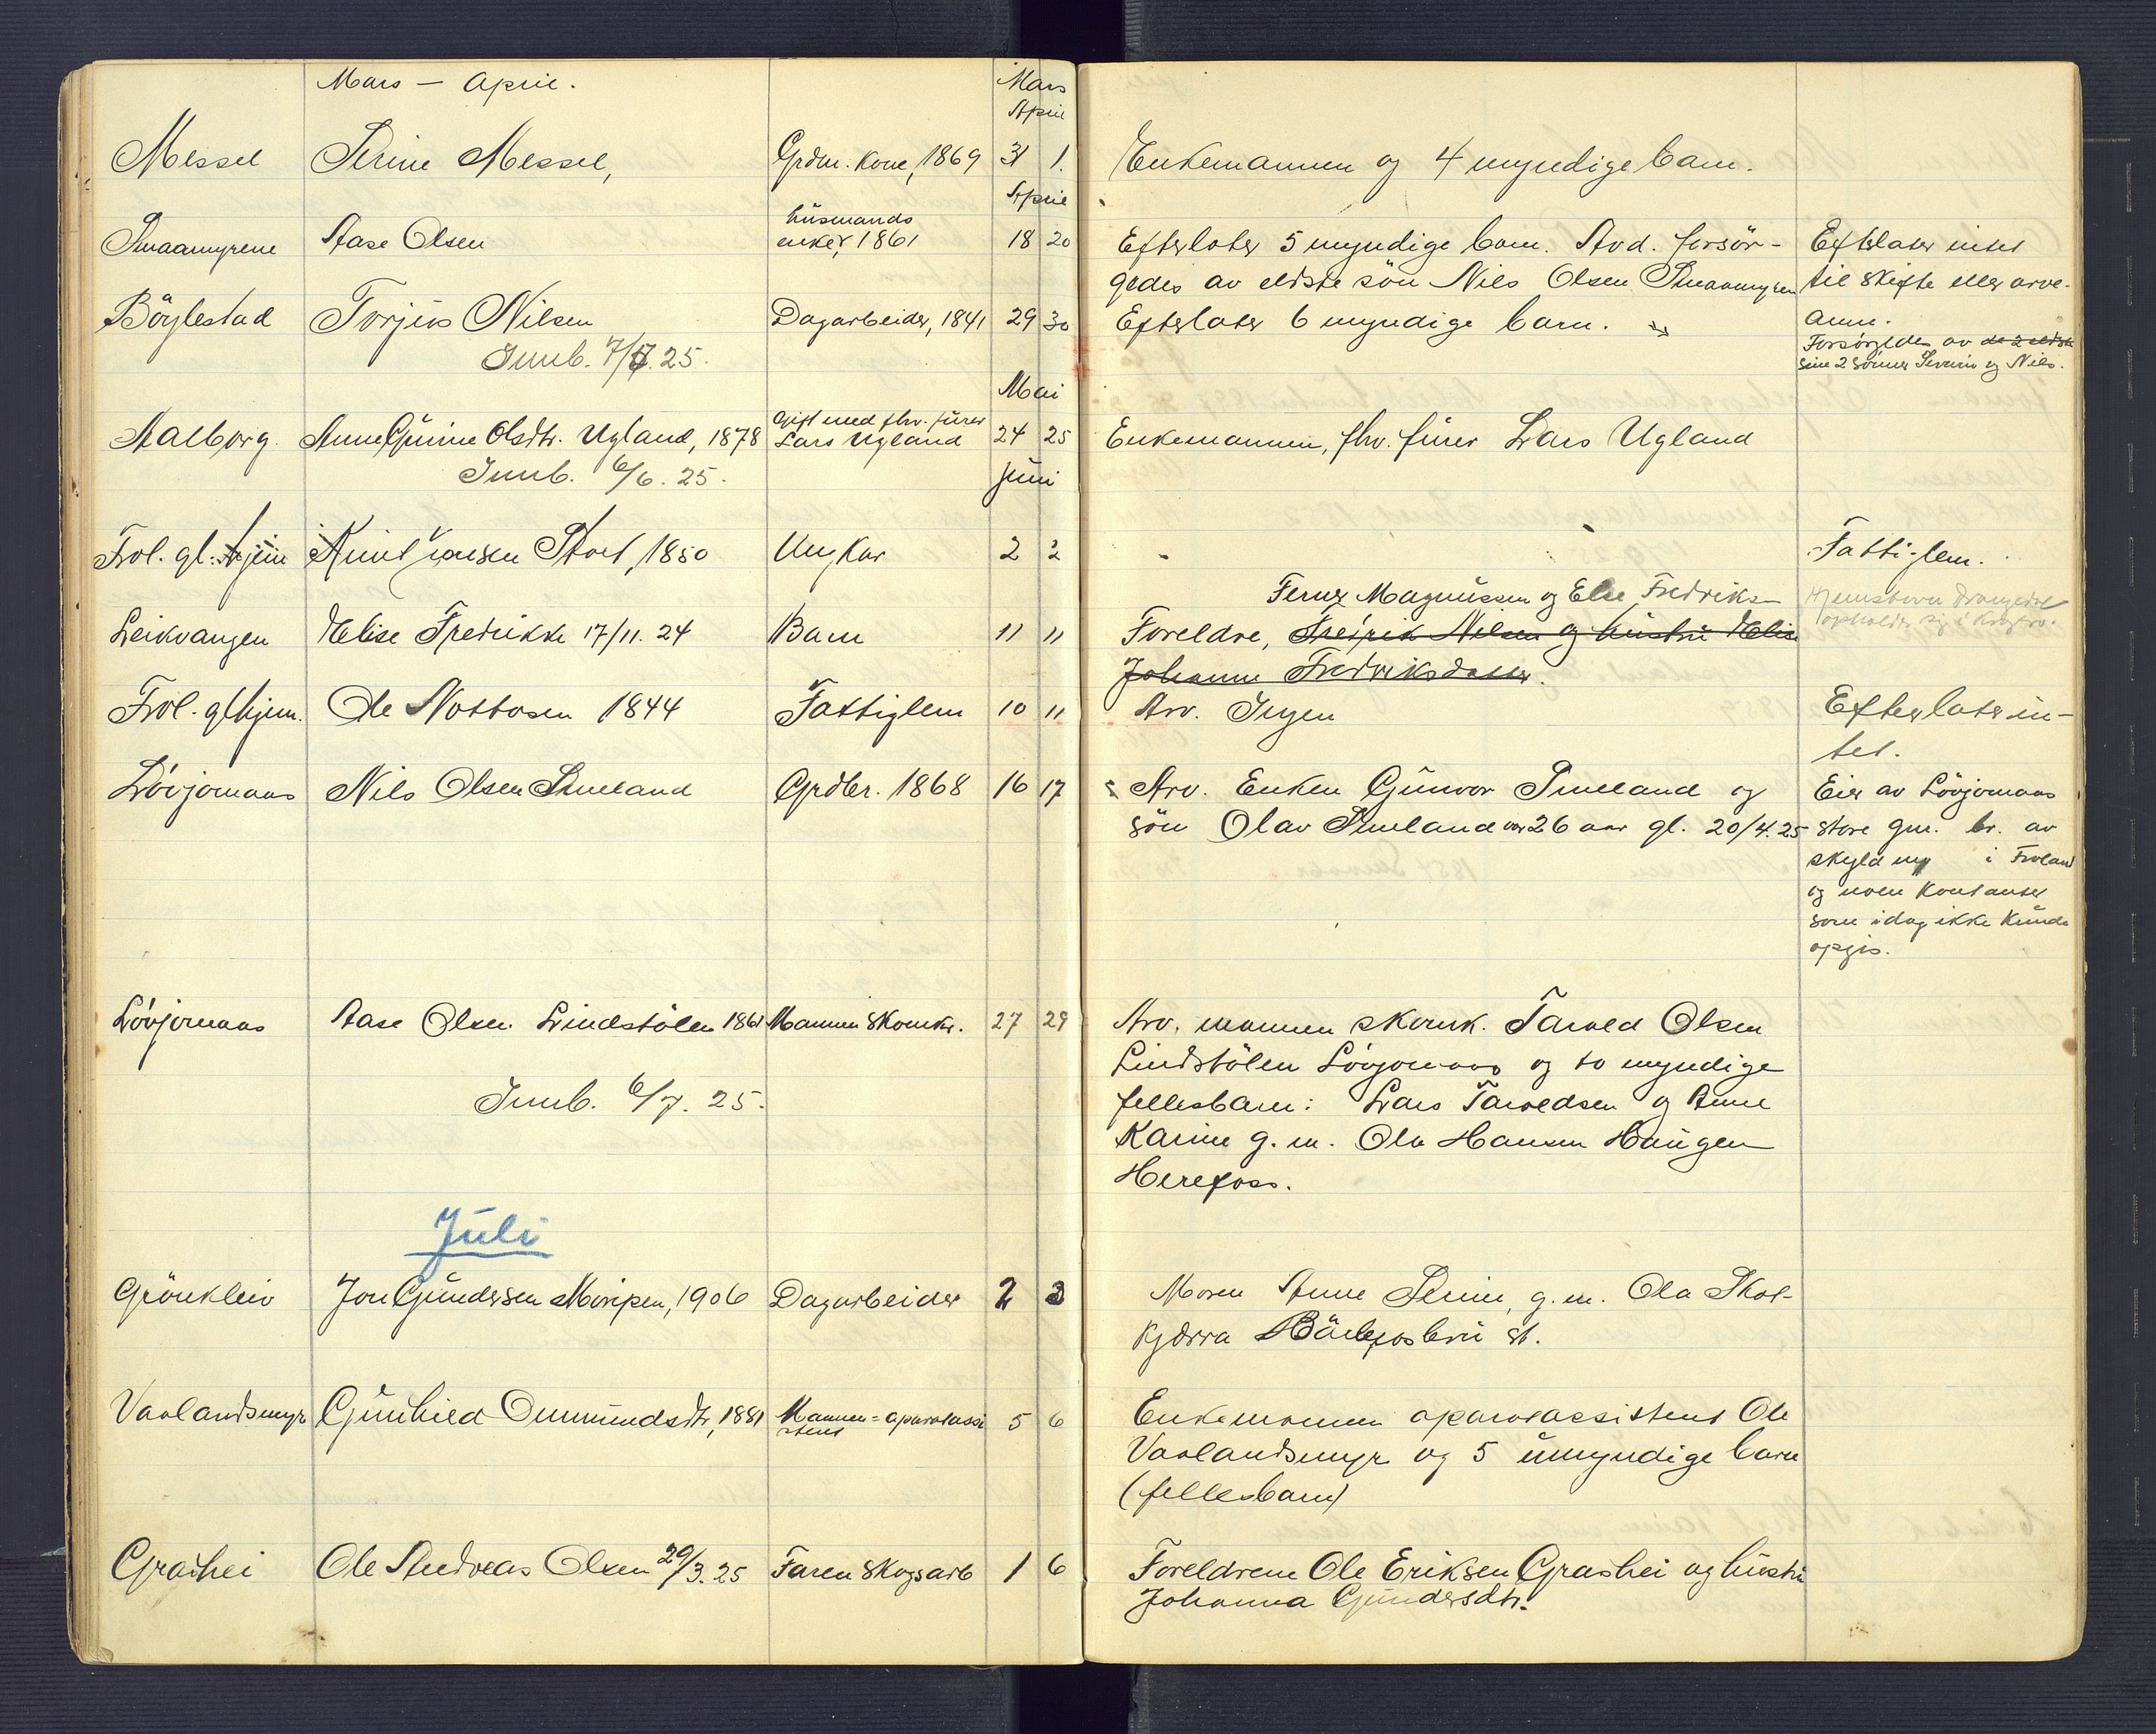 Mars – April.
Mars
April
Messel Serine Messel, Grdm. kone, 1869 31 1. Enkemannen og 4 myndige barn.
April
Smaamyrene Aase Olsen husmands
enke, 1861 18 20 Efterlater 5 myndige barn. Avd. forsör- Efterlater intet
gedes av eldste sön Nils Olsen Smaamyren til skifte eller arve-
Böylestad Torjus Nilsen Dagarbeider, 1841 29 30 Efterlater 6 myndige barn. anm.
Innb. 7/7. 25. Forsörgedes av de 2 eldste
sine 2 sönner Severin og Nils.
Mai
Aalborg. Anne Gurine Olsdtr. Ugland, 1878 Gift med fhv. furer
Lars Ugland 24 25 Enkemannen, fhv. furer Lars Ugland
Innb. 6/6. 25. Juni
Frol. gl.hjem Knut Jonsen Stoet, 1850 Ungkar 2 2 Fattiglem.
Ferner Magnussen og Else Fredriks- Hjemstavn Drangedal
opholder sig i
Leikvangen Elise Fredrikke 17/11. 24 Barn 11 11 Foreldre, Fredrik Nilsen og hustru Elise
Johanne Fredriksdatter.
Frol. glhjem. Ole Nottosen 1844 Fattiglem 10 11 Arv. Ingen Efterlater in-
tet.
Lövjomaas Nils Olsen Smeland Grdbr. 1868 16 17 Arv. Enken Gunvor Smeland og Eier av Lövjomaas
sön Olav Smeland var 26 aar gl. 20/4. 25 store gnr. br. av
skyld mrk i Froland
og noen kontanter
som idag ikke kunde
opgis.
Lövjomaas Aase Olsen Lindstölen 1861 Mannen skomkr. 27 29 Arv. mannen skomk. Tarald Olsen
Lindstölen Lövjomaas og to myndige
Innb. 6/7. 25. fellesbarn: Lars Taraldsen og Anne
Karine g. m. Ola Hansen Haugen
Herefoss.
Juli
Grönkleiv Jon Gundersen Moripen, 1906 Dagarbeider 2 3 Moren Anne Serine, g. m. Ola Skot-
kjærra Böylefosbru st.
Vaalandsmyr Gunhild Ommundsdtr, 1881 Mannen = aparatassi
stent 5 6 Enkemannen aparatassistent Ole
Vaalandsmyr og 5 umyndige barn
(fellesbarn)
Grashei Ole Andreas Olsen 29/3. 25 Faren skogsarb 1 6 Foreldrene Ole Eriksen Grashei og hustru
Johanna Gundersdtr.